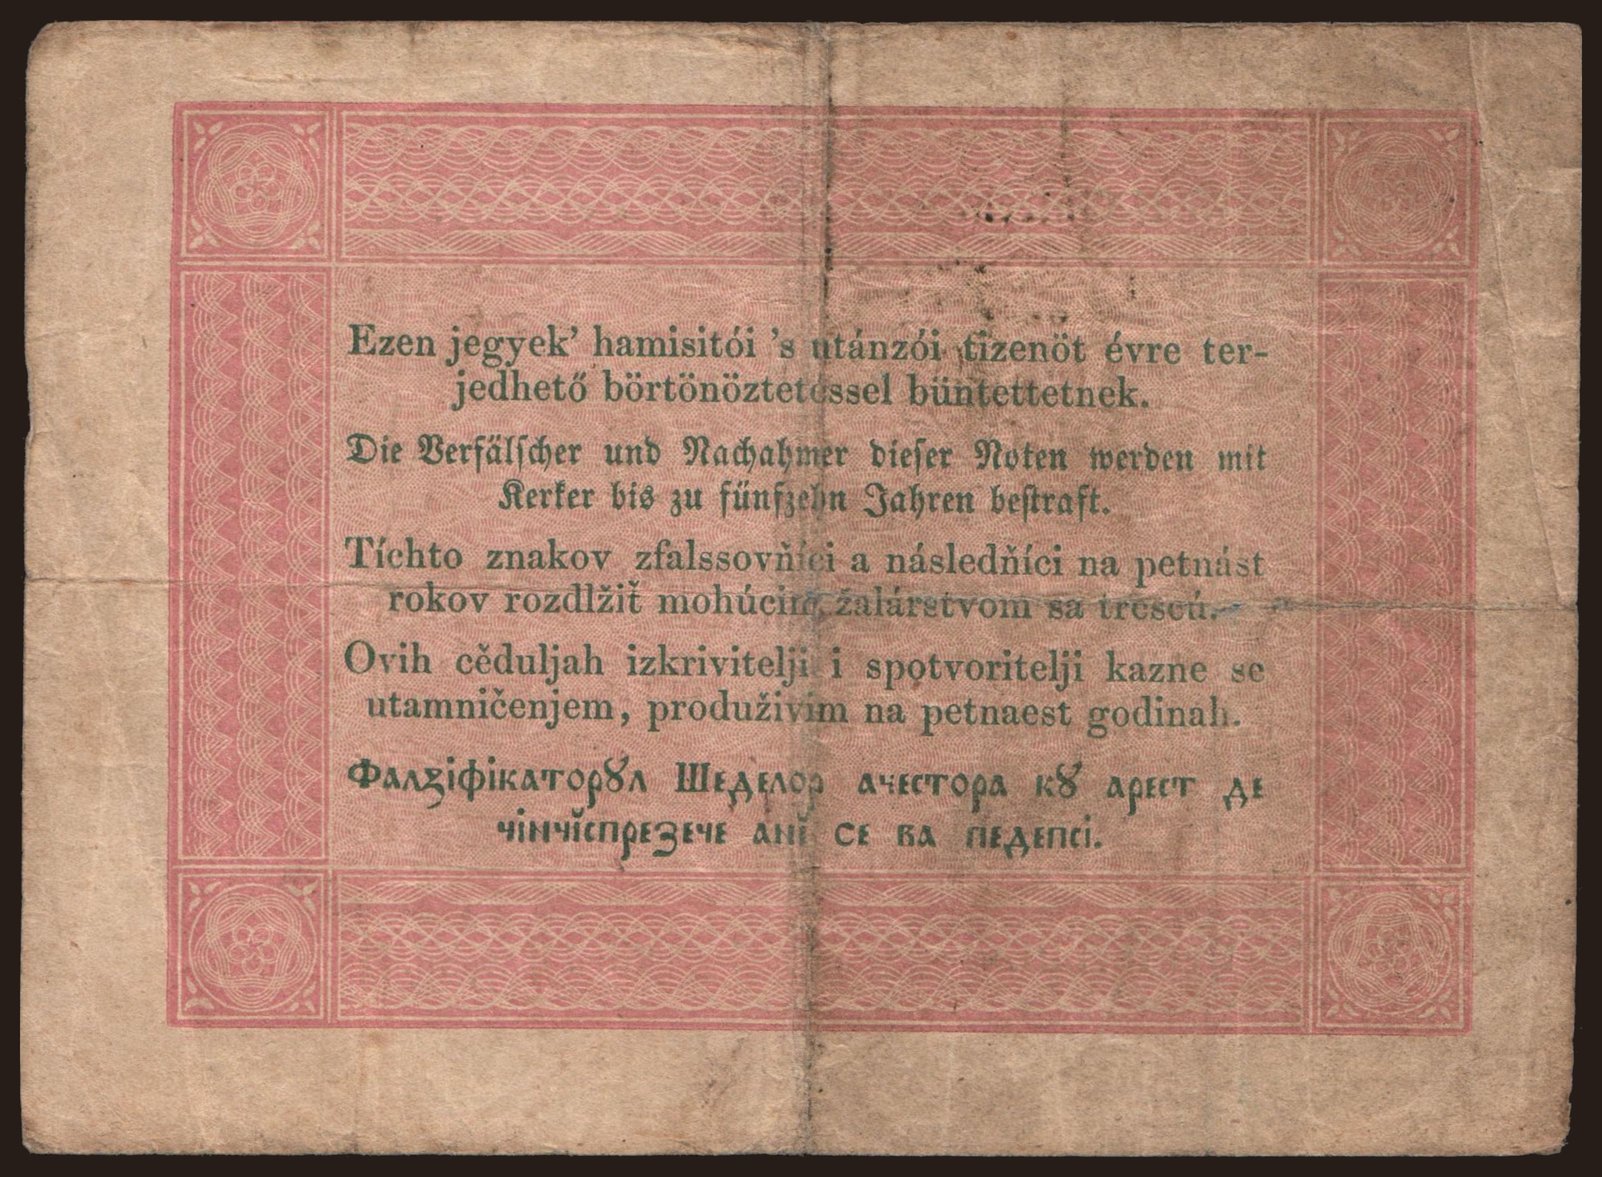 Ezen jegyek' hamisitói 's utánzói tizenöt évre ter-
jedhető börtönöztetéssel büntettetnek.
Die Verfälscher und Nachahmer dieser Noten werden mit
Kerker bis zu fünfzehn Jahren bestraft.
Tíchto znakov zfalssovňíci a následňíci na petnást
rokov rozdlžiť mohúcim žalárstvom sa trescú.
Ovih cěduljah izkrivitelji i spotvoritelji kazne se
utamničenjem, produživim na petnaest godinah.
Фалзіфікаторꙋл Шеделор ачестора кꙋ арест де
чінчĭспрезече анĭ се ва педепсі.